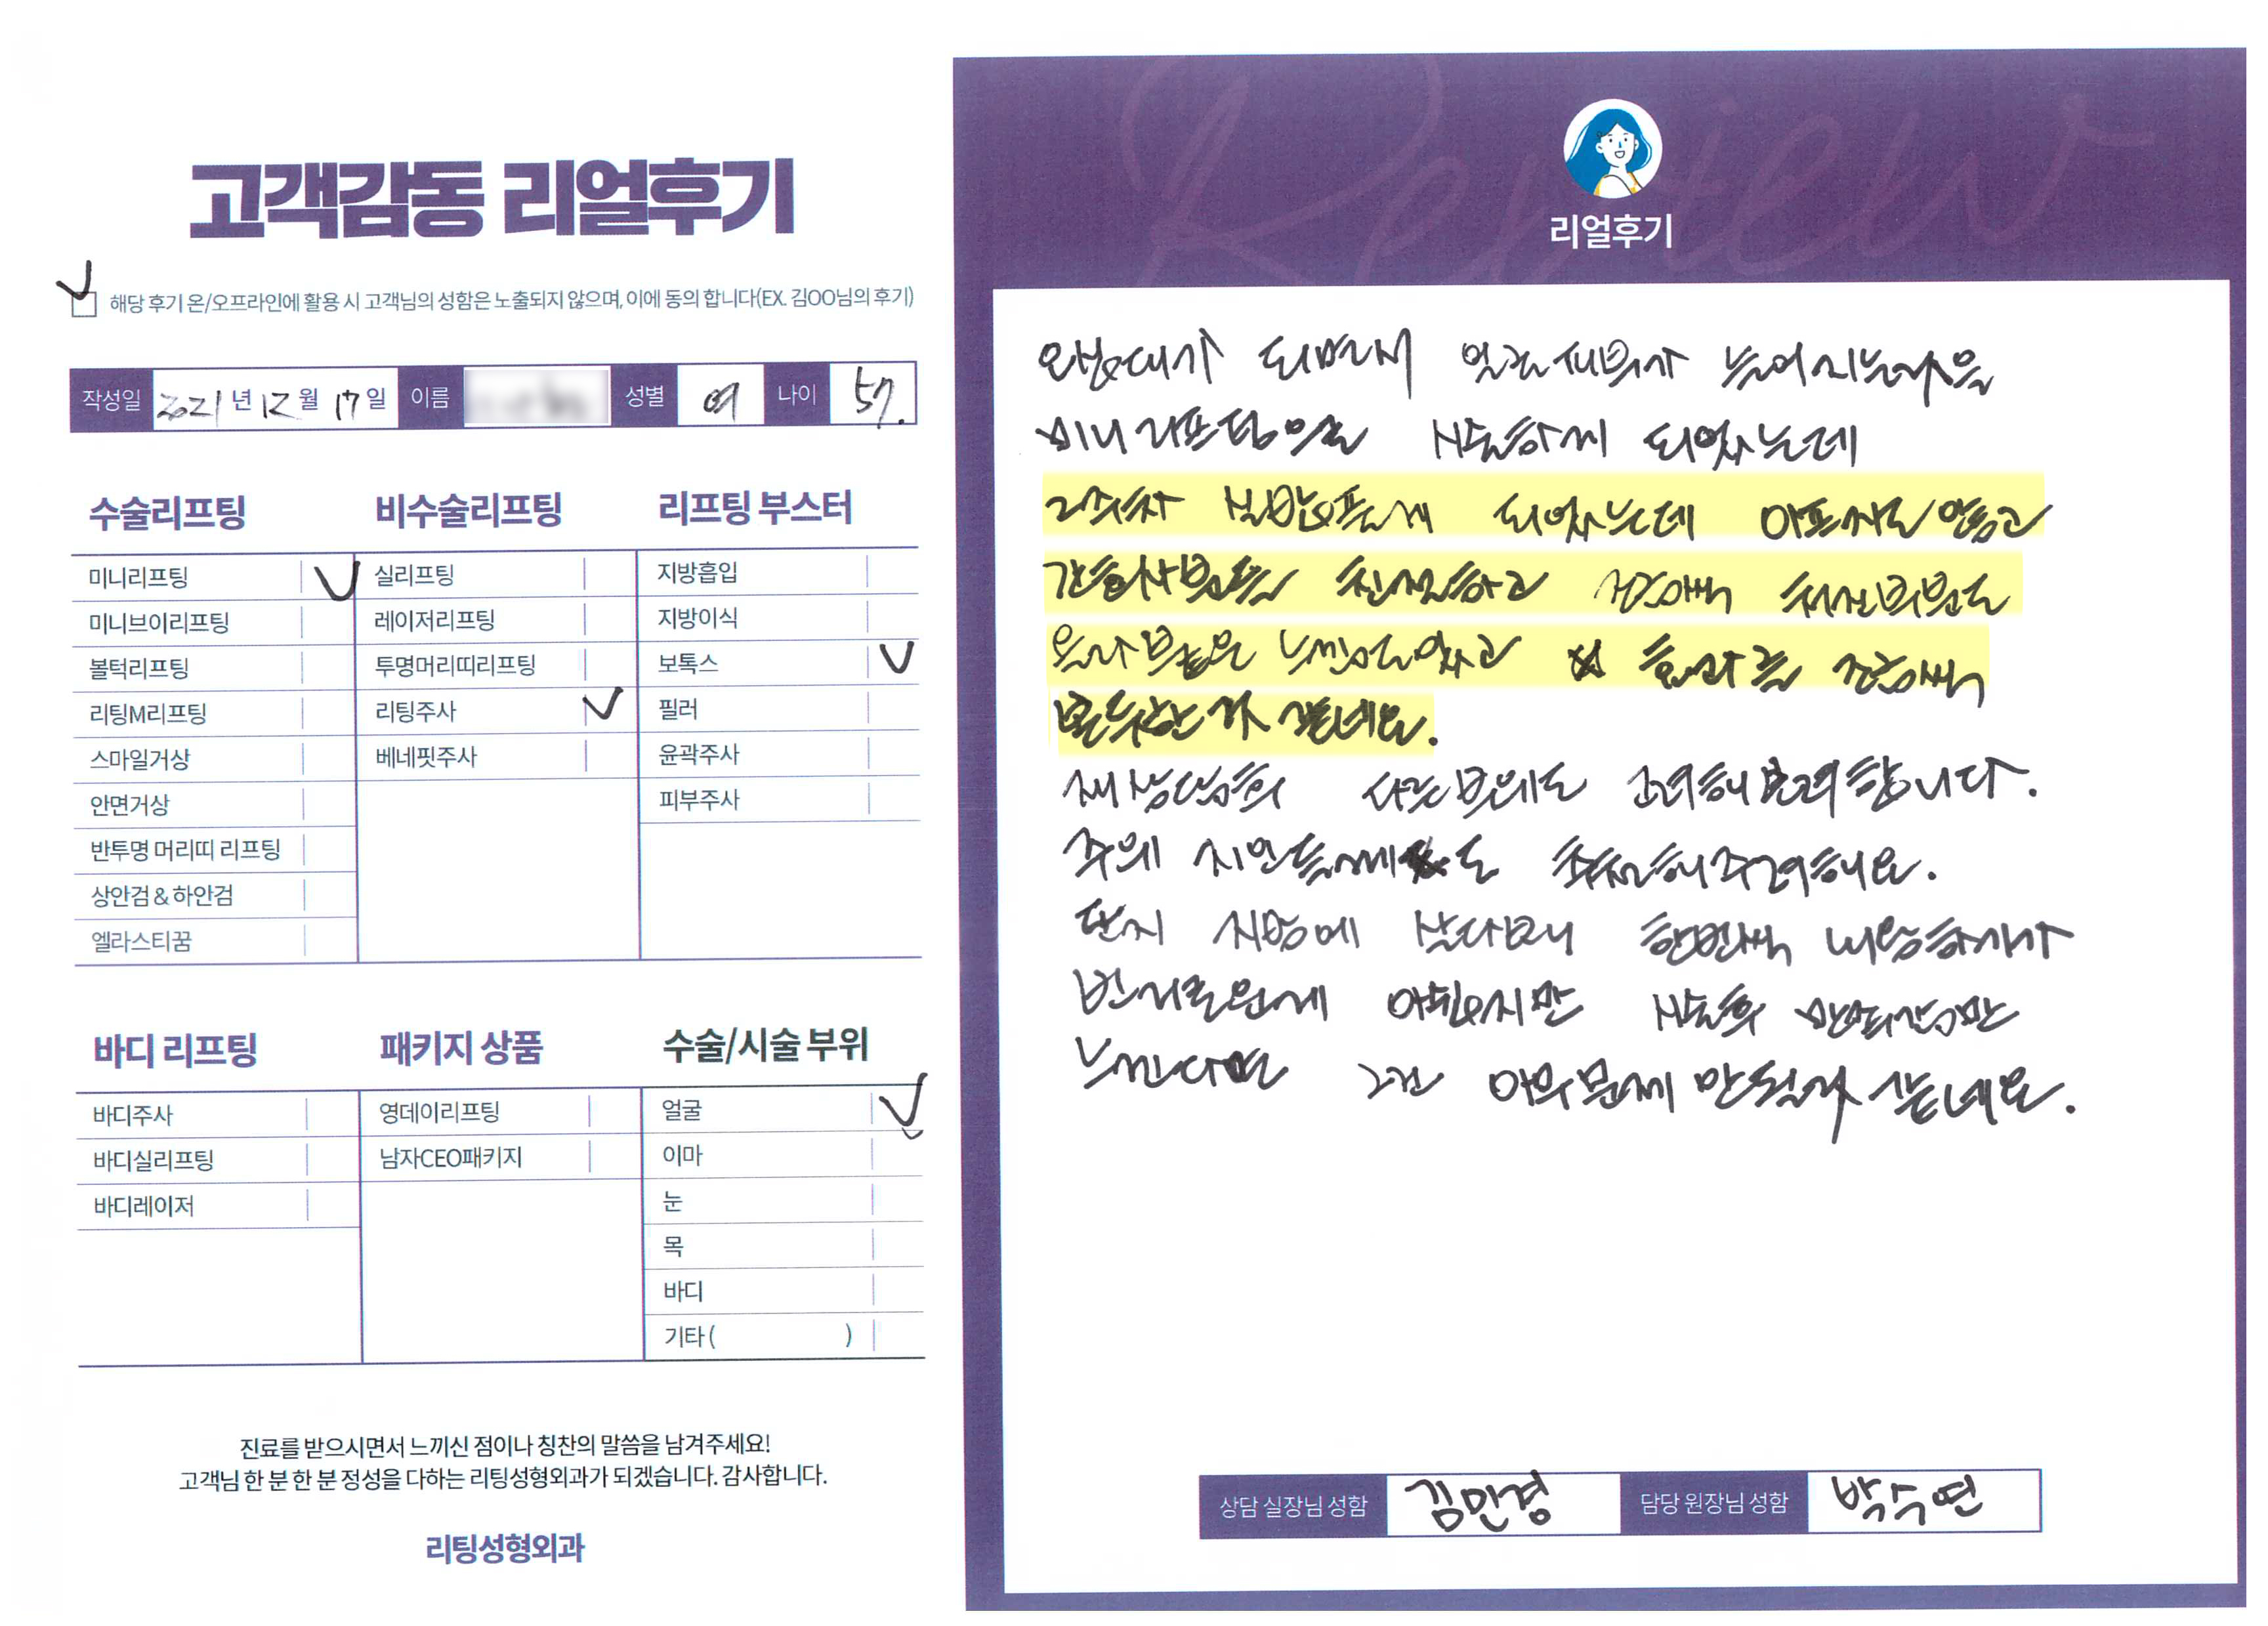 고객감동 리얼후기
해당 후기 온/오프라인에 활용 시 고객님의 성함은 노출되지 않으며, 이에 동의 합니다(EX. 김OO님의 후기)
작성일 2021년 12월 17일 이름 성별 여 나이 57.
수술리프팅
미니리프팅
미니브이리프팅
볼턱리프팅
리팅M리프팅
스마일거상
안면거상
반투명 머리띠 리프팅
상안검 & 하안검
엘라스티꿈
비수술리프팅
실리프팅
레이저리프팅
투명머리띠리프팅
리팅주사
베네핏주사
리프팅 부스터
지방흡입
지방이식
보톡스
필러
윤곽주사
피부주사
바디 리프팅
바디주사
바디실리프팅
바디레이저
패키지 상품
영데이리프팅
남자CEO패키지
수술/시술 부위
얼굴
이마
눈
목
바디
기타 ( )
진료를 받으시면서 느끼신 점이나 칭찬의 말씀을 남겨주세요!
고객님 한 분 한 분 정성을 다하는 리팅성형외과가 되겠습니다. 감사합니다.
리팅성형외과
Review
리얼후기
되면서 얼굴피부가 늘어지는거을
미니리프팅으로 시술하게 되었는데
2주차 실밥 되었는데 아프지도 않고
간호사분들 친절하고 처진부분도
올라 붙은 느낌도있고 효과를 조금씩
본듯한거 같네요.
재상담후 다른부위도 고려해보려합니다.
주위 지인들에게도 추천해주려해요.
단지 지방에 살다보니 한번씩 내왕하기가
번거로운게 아쉽지만 시술후 만족감만
느낀다면 그건 아무문제 안될거 같네요.
상담 실장님 성함 김민경 담당 원장님 성함 박수연